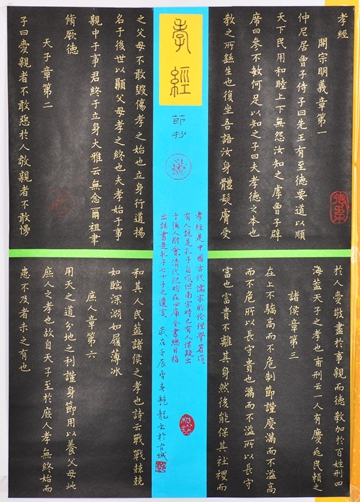 孝經
節抄
孝經
開宗明義章第一
仲尼居曾子侍子曰先王有至德要道以順
天下民用和睦上下無怨汝知之乎曾子辟
席曰参不敏何足以知之子曰夫孝德之本也
教之所繇生也復坐吾語汝身體髮膚受
之父母不敢毀傷孝之始也立身行道揚
名于後世以顯父母孝之終也夫孝始于事
親中于事君終于立身大雅云無念爾祖聿
脩厥德
天子章第二
子曰愛親者不敢惡於人敬親者不敢慢
於人愛敬盡於事親而德教加於百姓刑四
海蓋天子之孝也甫刑云一人有慶兆民賴之
諸侯章第三
在上不驕高而不危制節謹度滿而不溢高
而不危所以長守貴也滿而不溢所以長守
富也富貴不離其身然後能保其社稷而
和其人民蓋諸侯之孝也詩云戰戰兢兢
如臨深淵如履薄冰
庶人章第六
用天之道分地之利謹身節用以養父母此
庶人之孝也故自天子至於庶人孝無終始而
患不及者未之有也
孝經是中國古代儒家的倫理學著作
有人說是孔子自作但南宋時已有人懷疑出
于後人附會清代紀昀在四庫全書總目指
出該書是孔子七十子之遺言